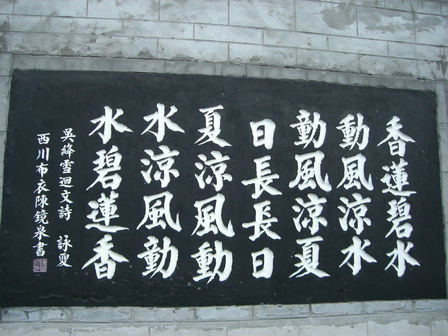 香蓮碧水
動風涼水
動風涼夏
日長長日
夏涼風動
水涼風動
水碧蓮香
吳絳雪迴文詩 詠夏
西川布衣陳鏡泉書